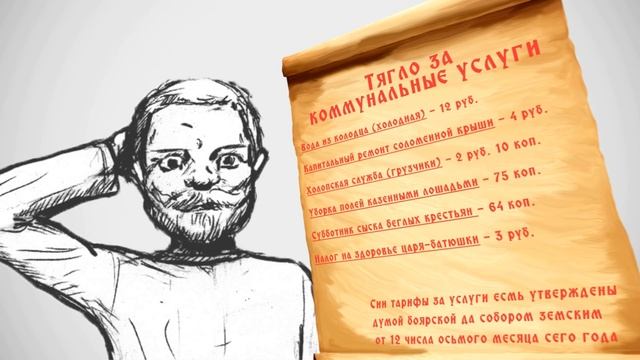 Тягло за
коммунальные услуги
Вода из колодца (холодная) – 12 руб.
Капитальный ремонт соломенной крыши – 4 руб.
Холопская служба (грузчики) – 2 руб. 10 коп.
Уборка полей казенными лошадьми – 75 коп.
Субботник сыска беглых крестьян – 64 коп.
Налог на здоровье царя-батюшки – 3 руб.
Сии тарифы за услуги есмь утверждены
думой боярской да собором земским
от 12 числа осьмого месяца сего года